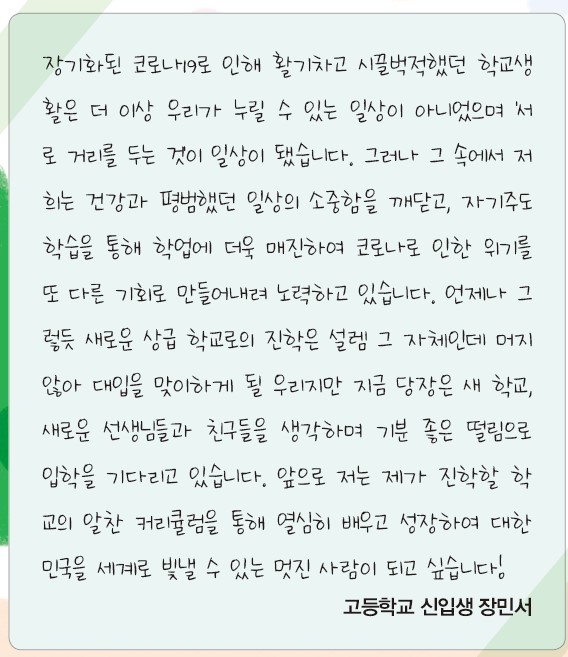 장기화된 코로나19로 인해 활기차고 시끌벅적했던 학교생
활은 더 이상 우리가 누릴 수 있는 일상이 아니었으며 '서
로 거리를 두는 것'이 일상이 됐습니다. 그러나 그 속에서 저
희는 건강과 평범했던 일상의 소중함을 깨닫고, 자기주도
학습을 통해 학업에 더욱 매진하여 코로나로 인한 위기를
또 다른 기회로 만들어내려 노력하고 있습니다. 언제나 그
렇듯 새로운 상급 학교로의 진학은 설렘 그 자체인데 머지
않아 대입을 맞이하게 될 우리지만 지금 당장은 새 학교,
새로운 선생님들과 친구들을 생각하며 기분 좋은 떨림으로
입학을 기다리고 있습니다. 앞으로 저는 제가 진학할 학
교의 알찬 커리큘럼을 통해 열심히 배우고 성장하여 대한
민국을 세계로 빛낼 수 있는 멋진 사람이 되고 싶습니다!
고등학교 신입생 장민서